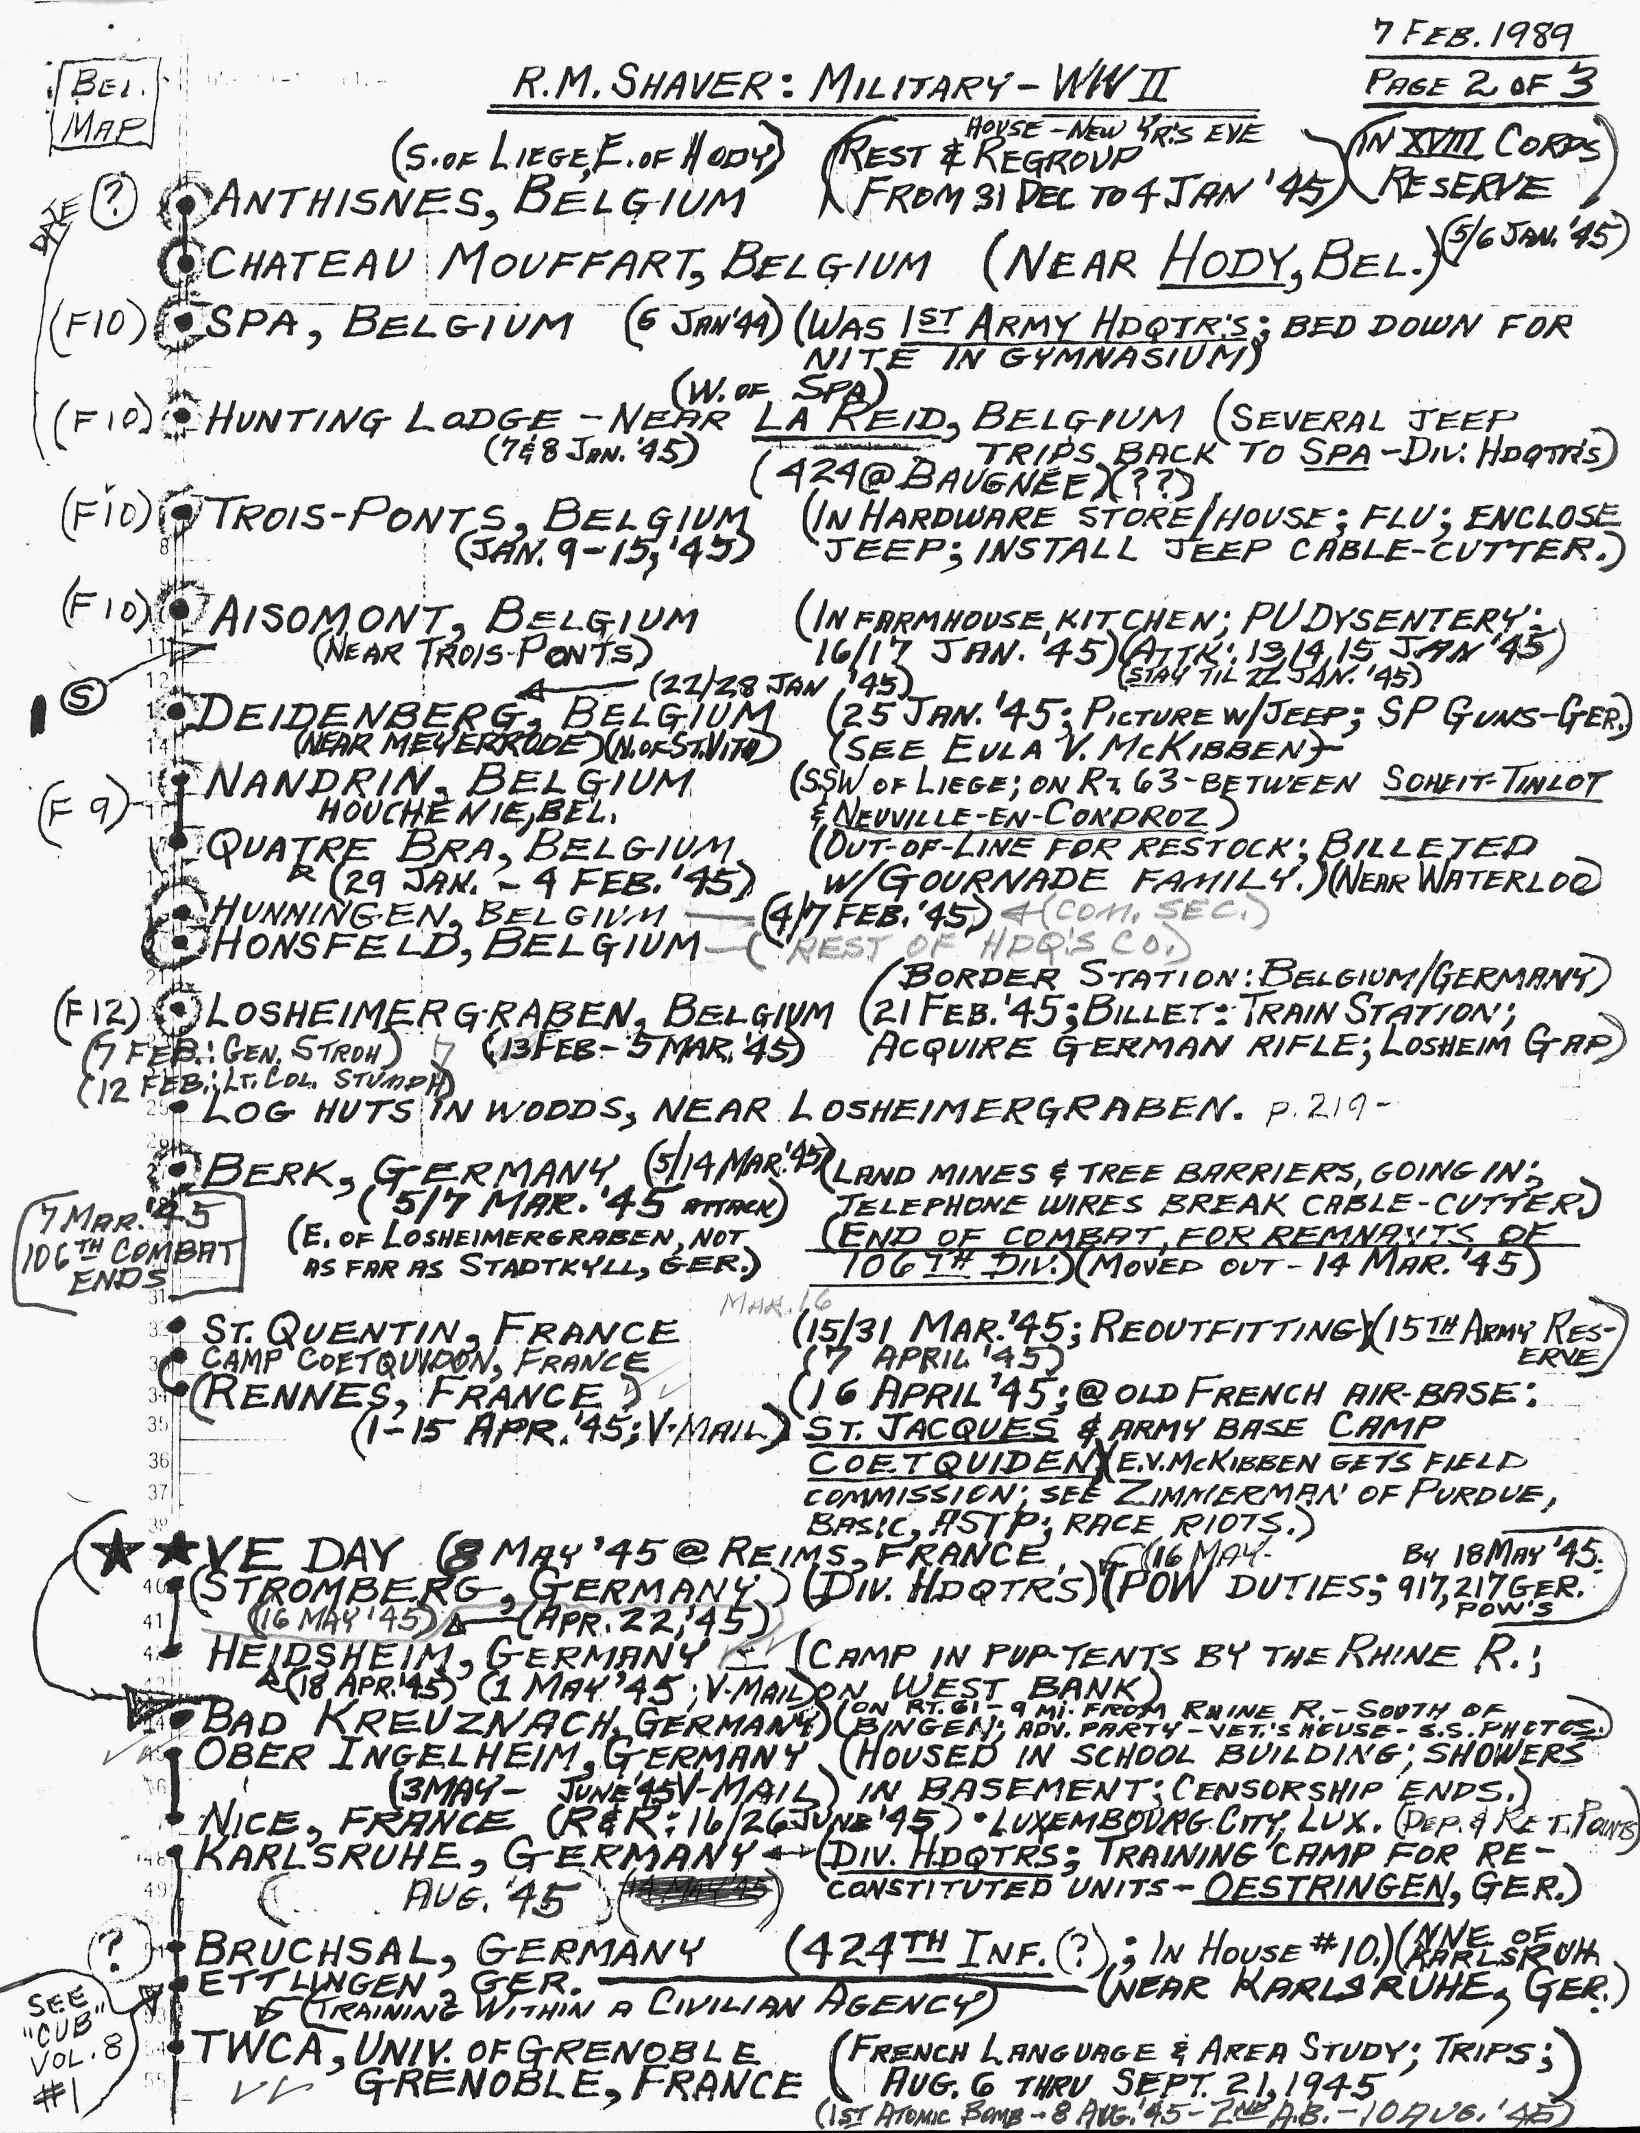 7 FEB. 1989
R.M. SHAVER: MILITARY - WWII
PAGE 2 OF 3
BEL.
MAP
DATE
?
HOUSE - NEW YR'S EVE
(S. OF LIEGE, E. OF HODY) (REST & REGROUP (IN XVIII CORPS
ANTHISNES, BELGIUM FROM 31 DEC TO 4 JAN '45) RESERVE)
CHATEAU MOUFFART, BELGIUM (NEAR HODY, BEL.) (5/6 JAN. '45)
(F10) SPA, BELGIUM (6 JAN '44) (WAS 1ST ARMY HDQTR'S; BED DOWN FOR
NITE IN GYMNASIUM)
(W. OF SPA)
(F10) HUNTING LODGE - NEAR LA REID, BELGIUM (SEVERAL JEEP
(7&8 JAN. '45) TRIPS BACK TO SPA - DIV. HDQTR'S)
(424 @ BAUGNÉE) (??)
(F10) TROIS-PONTS, BELGIUM (IN HARDWARE STORE/HOUSE; FLU; ENCLOSE
(JAN. 9-15, '45) JEEP; INSTALL JEEP CABLE-CUTTER.)
(F10) AISOMONT, BELGIUM (IN FARMHOUSE KITCHEN; PU DYSENTERY;
(NEAR TROIS-PONTS) 16/17 JAN. '45) (ATTK: 13, 14, 15 JAN '45)
(STAY TIL 22 JAN. '45)
S
(22/28 JAN, '45)
DEIDENBERG, BELGIUM (25 JAN. '45; PICTURE W/JEEP; SP GUNS-GER.)
(NEAR MEYERRODE) (N. OF ST. VITH) (SEE EULA V. MCKIBBEN)
NANDRIN, BELGIUM (SSW OF LIEGE; ON RT. 63 - BETWEEN SCHEIT-TINLOT
(F9) HOUCHENIE, BEL. & NEUVILLE-EN-CONDROZ)
QUATRE BRA, BELGIUM (OUT-OF-LINE FOR RESTOCK; BILLETED
(29 JAN. - 4 FEB. '45) W/GOURNADE FAMILY.) (NEAR WATERLOO)
HUNNINGEN, BELGIUM (4/7 FEB. '45) (COM. SEC.)
HONSFELD, BELGIUM - (REST OF HDQ'S CO.)
(BORDER STATION: BELGIUM/GERMANY)
(F12) LOSHEIMERGRABEN, BELGIUM (21 FEB. '45; BILLET: TRAIN STATION;
(7 FEB.: GEN. STROH) (13 FEB - 5 MAR. '45) ACQUIRE GERMAN RIFLE; LOSHEIM GAP)
(12 FEB.: LT. COL. STUMPH)
LOG HUTS IN WOODS, NEAR LOSHEIMERGRABEN. p. 219 -
BERK, GERMANY (5/14 MAR. '45) (LAND MINES & TREE BARRIERS, GOING IN;
(5/7 MAR. '45 ATTACK) TELEPHONE WIRES BREAK CABLE-CUTTER.)
7 MAR. '45
106TH COMBAT
ENDS
(E. OF LOSHEIMERGRABEN, NOT (END OF COMBAT, FOR REMNANTS OF
AS FAR AS STADTKYLL, GER.) 106TH DIV.) (MOVED OUT - 14 MAR. '45)
MAR. 16
ST. QUENTIN, FRANCE (15/31 MAR. '45; REOUTFITTING) (15TH ARMY RES-
CAMP COETQUIDON, FRANCE (7 APRIL '45) ERVE)
(RENNES, FRANCE) (16 APRIL '45; @ OLD FRENCH AIR-BASE:
(1-15 APR. '45; V-MAIL) ST. JACQUES & ARMY BASE CAMP
COETQUIDEN) (E.V. MCKIBBEN GETS FIELD
COMMISSION; SEE ZIMMERMAN OF PURDUE,
BASIC, ASTP; RACE RIOTS.)
VE DAY (8 MAY '45 @ REIMS, FRANCE (16 MAY- BY 18 MAY '45:
(STROMBERG, GERMANY) (DIV. HDQTR'S) (POW DUTIES; 917,217 GER.
POW'S
(16 MAY '45) (APR. 22, '45)
HEIDSHEIM, GERMANY (CAMP IN PUP-TENTS BY THE RHINE R.;
(18 APR. '45) (1 MAY '45; V-MAIL) ON WEST BANK)
BAD KREUZNACH, GERMANY) (ON RT. 61 - 9 MI. FROM RHINE R. - SOUTH OF
BINGEN; ADV. PARTY - VET.'S HOUSE - S.S. PHOTOS.)
OBER INGELHEIM, GERMANY (HOUSED IN SCHOOL BUILDING; SHOWERS
(3 MAY - JUNE '45 V-MAIL) IN BASEMENT; CENSORSHIP ENDS.)
NICE, FRANCE (R&R: 16/26 JUNE '45) • LUXEMBOURG CITY, LUX. (DEP. & RET. POINTS)
KARLSRUHE, GERMANY (DIV. HDQTRS; TRAINING CAMP FOR RE-
( AUG. '45 ) (14 MAY '45) CONSTITUTED UNITS - OESTRINGEN, GER.)
? BRUCHSAL, GERMANY (424TH INF. (?); IN HOUSE #10.) (NNE OF
KARLSRUH
ETTLINGEN, GER. (NEAR KARLSRUHE, GER.)
(TRAINING WITHIN A CIVILIAN AGENCY)
SEE
"CUB"
VOL. 8
#1
TWCA, UNIV. OF GRENOBLE (FRENCH LANGUAGE & AREA STUDY; TRIPS;
GRENOBLE, FRANCE AUG. 6 THRU SEPT. 21, 1945)
(1ST ATOMIC BOMB - 8 AUG. '45 - 2ND A.B. - 10 AUG. '45)